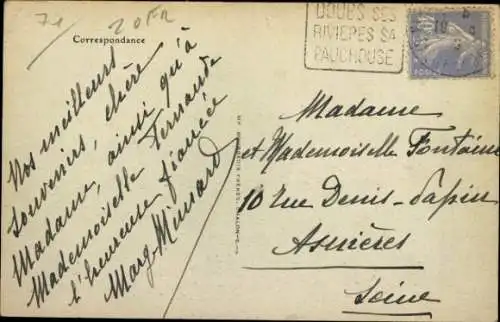 71
20 FR
Correspondance
Nos meilleurs
souvenirs, chère
Madame, ainsi qu'à
Mademoiselle Fernande
l'heureuse fiancée
Marg. Minsard
DOUBS SES
RIVIERES SA
PAUCHOUSE
40
Madame
et Mademoiselle Fontaine
10 Rue Denis-Papin
Asnières
Seine